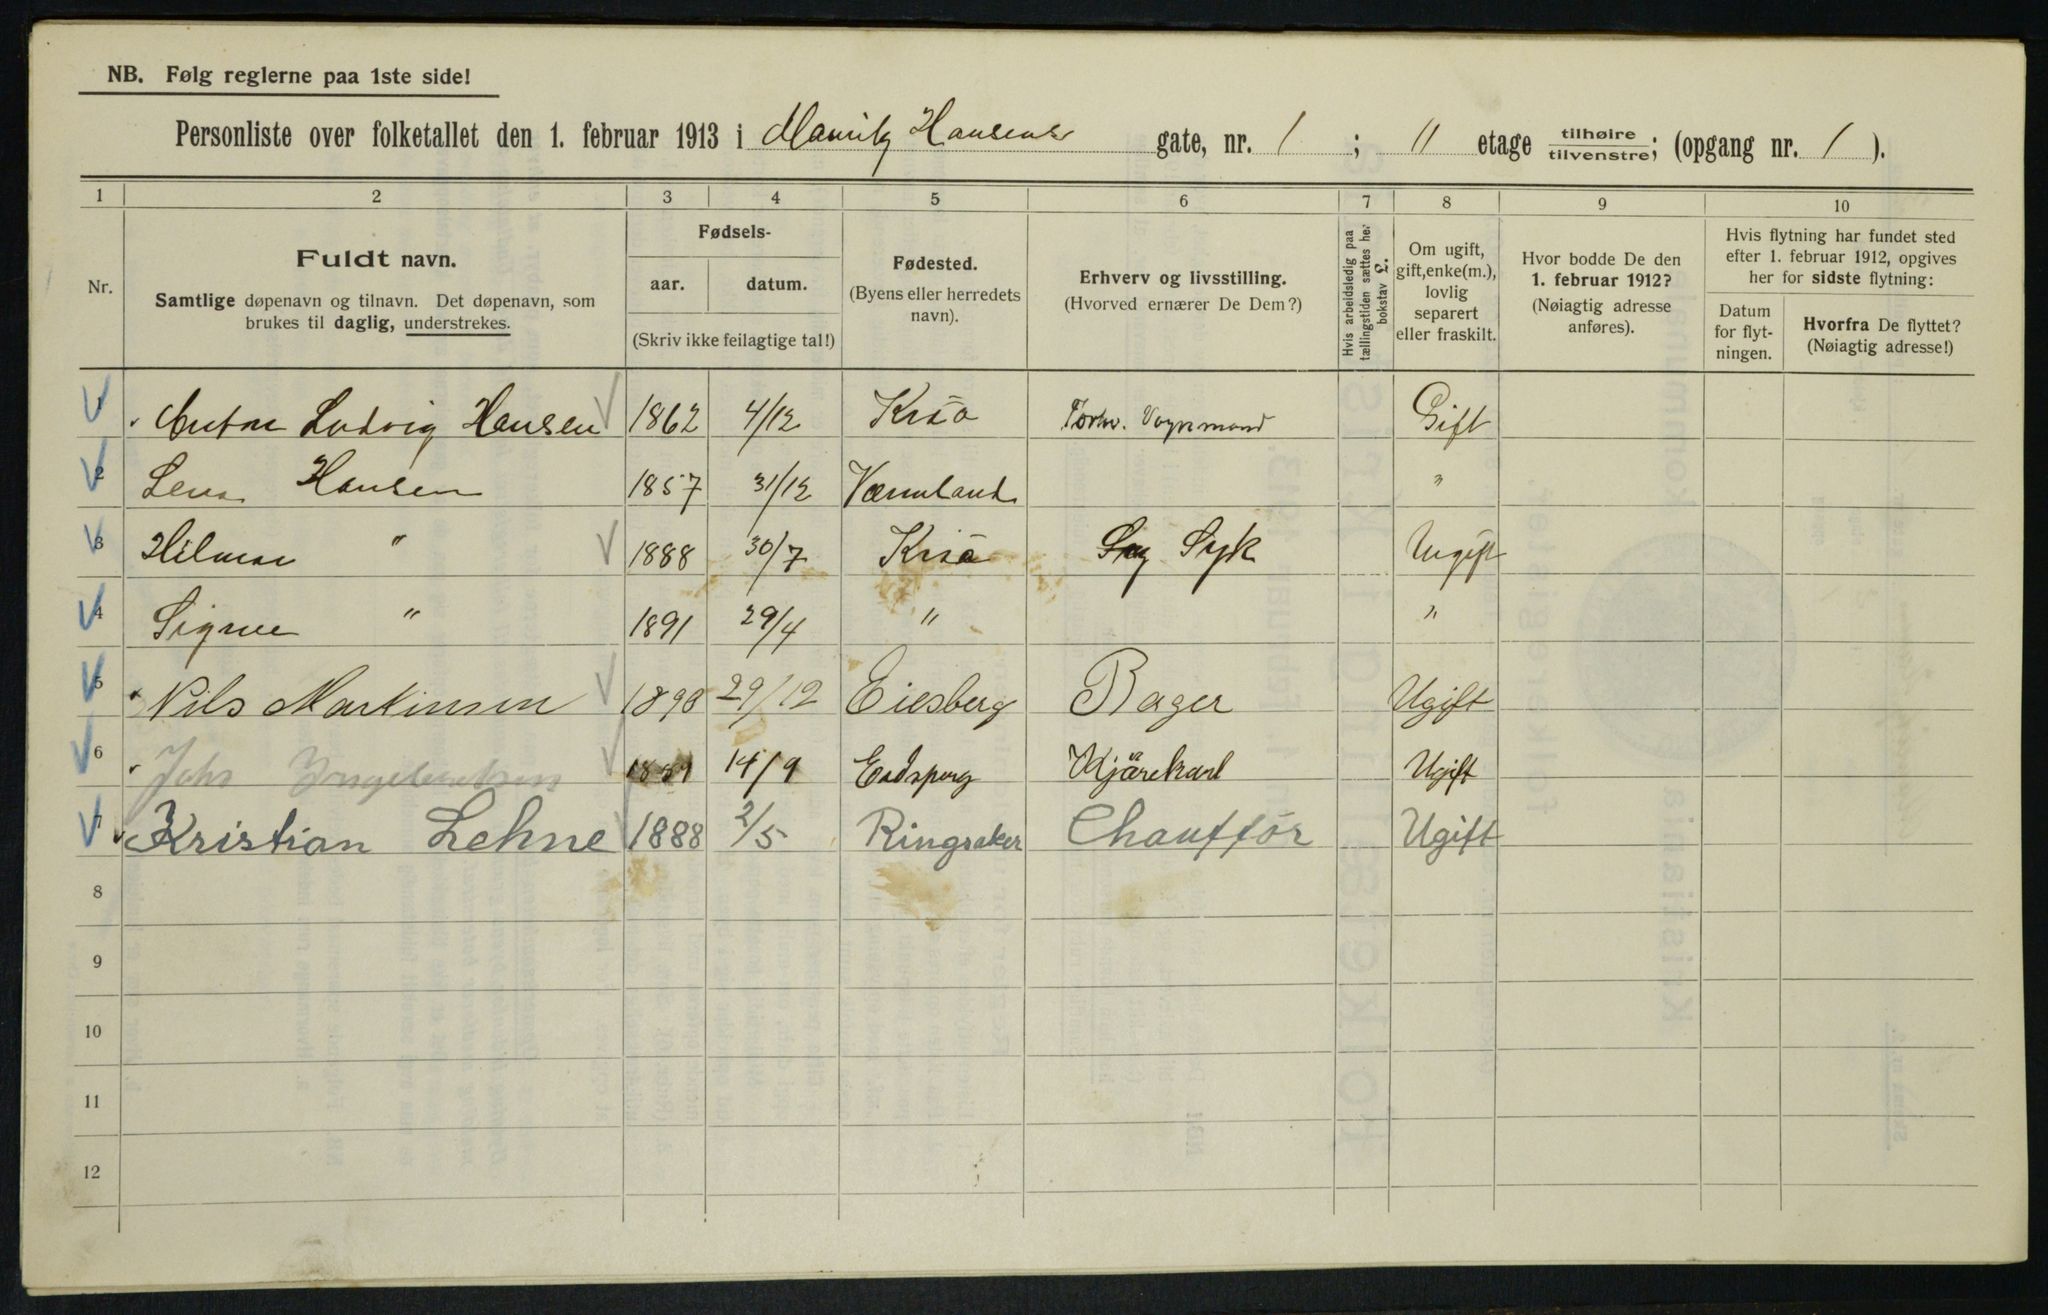 NB. Følg reglerne paa 1ste side!
Personliste over folketallet den 1. februar 1913 i Mauritz Hansens gate, nr. 1 ; 11 etage tilhøire tilvenstre; (opgang nr. 1 ).
1 2 3 4 5 6 7 8 9 10
Nr.
Fuldt navn.
Samtlige døpenavn og tilnavn. Det døpenavn, som
brukes til daglig, understrekes.
Fødsels-
aar. datum.
(Skriv ikke feilagtige tal!)
Fødested.
(Byens eller herredets
navn).
Erhverv og livsstilling.
(Hvorved ernærer De Dem?)
Hvis arbeidsledig paa
tællingstiden sættes her
bokstav £.
Om ugift,
gift, enke(m.),
lovlig
separert
eller fraskilt.
Hvor bodde De den
1. februar 1912?
(Nøiagtig adresse
anføres).
Hvis flytning har fundet sted
efter 1. februar 1912, opgives
her for sidste flytning:
Datum
for flyt-
ningen.
Hvorfra De flyttet?
(Nøiagtig adresse!)
1 Anton Ludvig Hansen 1862 4/12 Kria Vognmand Gift
2 Lena Hansen 1857 31/12 Værmland "
3 Hilmar " 1888 30/7 Kria Syk Ugift
4 Signe " 1891 29/4 " "
5 Nils Martinsen 1890 29/12 Eidsberg Bager Ugift
6 Joh 14/9 Eidsperg Kjørekarl Ugift
7 Kristian Lehne 1888 2/5 Ringsaker Chauffør Ugift
8
9
10
11
12